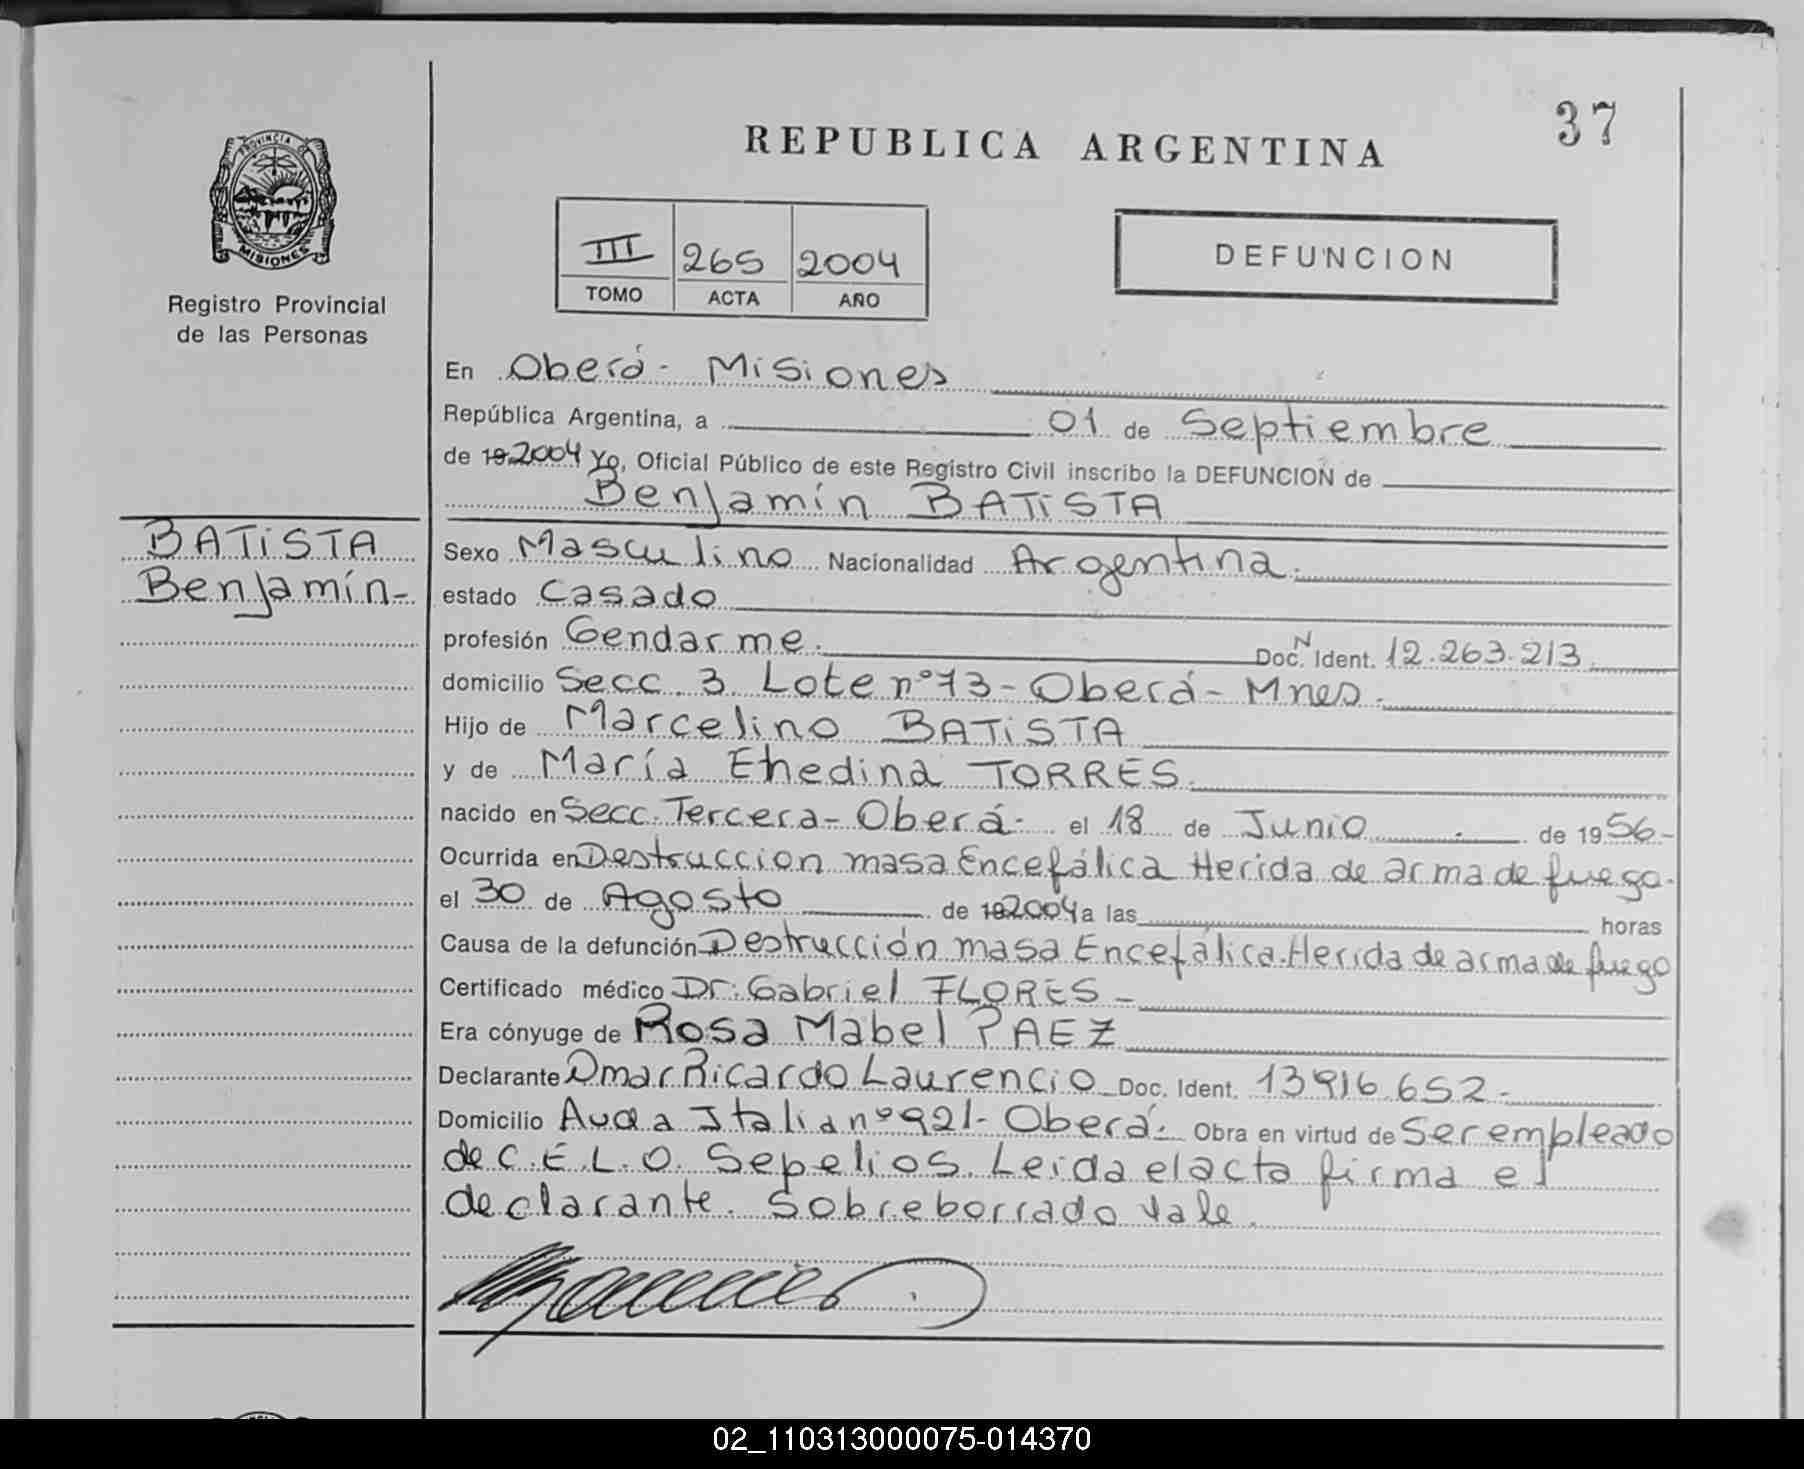 37
REPUBLICA ARGENTINA
PROVINCIA DE
MISIONES
Registro Provincial
de las Personas
III 265 2004
TOMO ACTA AÑO
DEFUNCION
En Oberá - Misiones
República Argentina, a 01 de Septiembre
de 19 2004 Yo, Oficial Público de este Registro Civil inscribo la DEFUNCION de
Benjamín BATISTA
BATISTA
Benjamín-
Sexo Masculino Nacionalidad Argentina.
estado Casado
profesión Gendarme. Doc. N Ident. 12.263.213
domicilio Secc. 3 Lote nº 73 - Oberá - Mnes.
Hijo de Marcelino BATISTA
y de María Ehedina TORRES.
nacido en Secc. Tercera - Oberá. el 18 de Junio de 19 56-
Ocurrida en Destruccion masa Encefálica Herida de arma de fuego.
el 30 de Agosto de 19 2004 a las horas
Causa de la defunción Destrucción masa Encefálica. Herida de arma de fuego
Certificado médico Dr. Gabriel FLORES -
Era cónyuge de Rosa Mabel PAEZ
Declarante Omar Ricardo Laurencio Doc. Ident. 13916.652-
Domicilio Avda Italia nº 921- Oberá. Obra en virtud de Ser empleado
de C.E.L.O. Sepelios. Leida el acta firma el
declarante. Sobreborrado Vale.
02_110313000075-014370